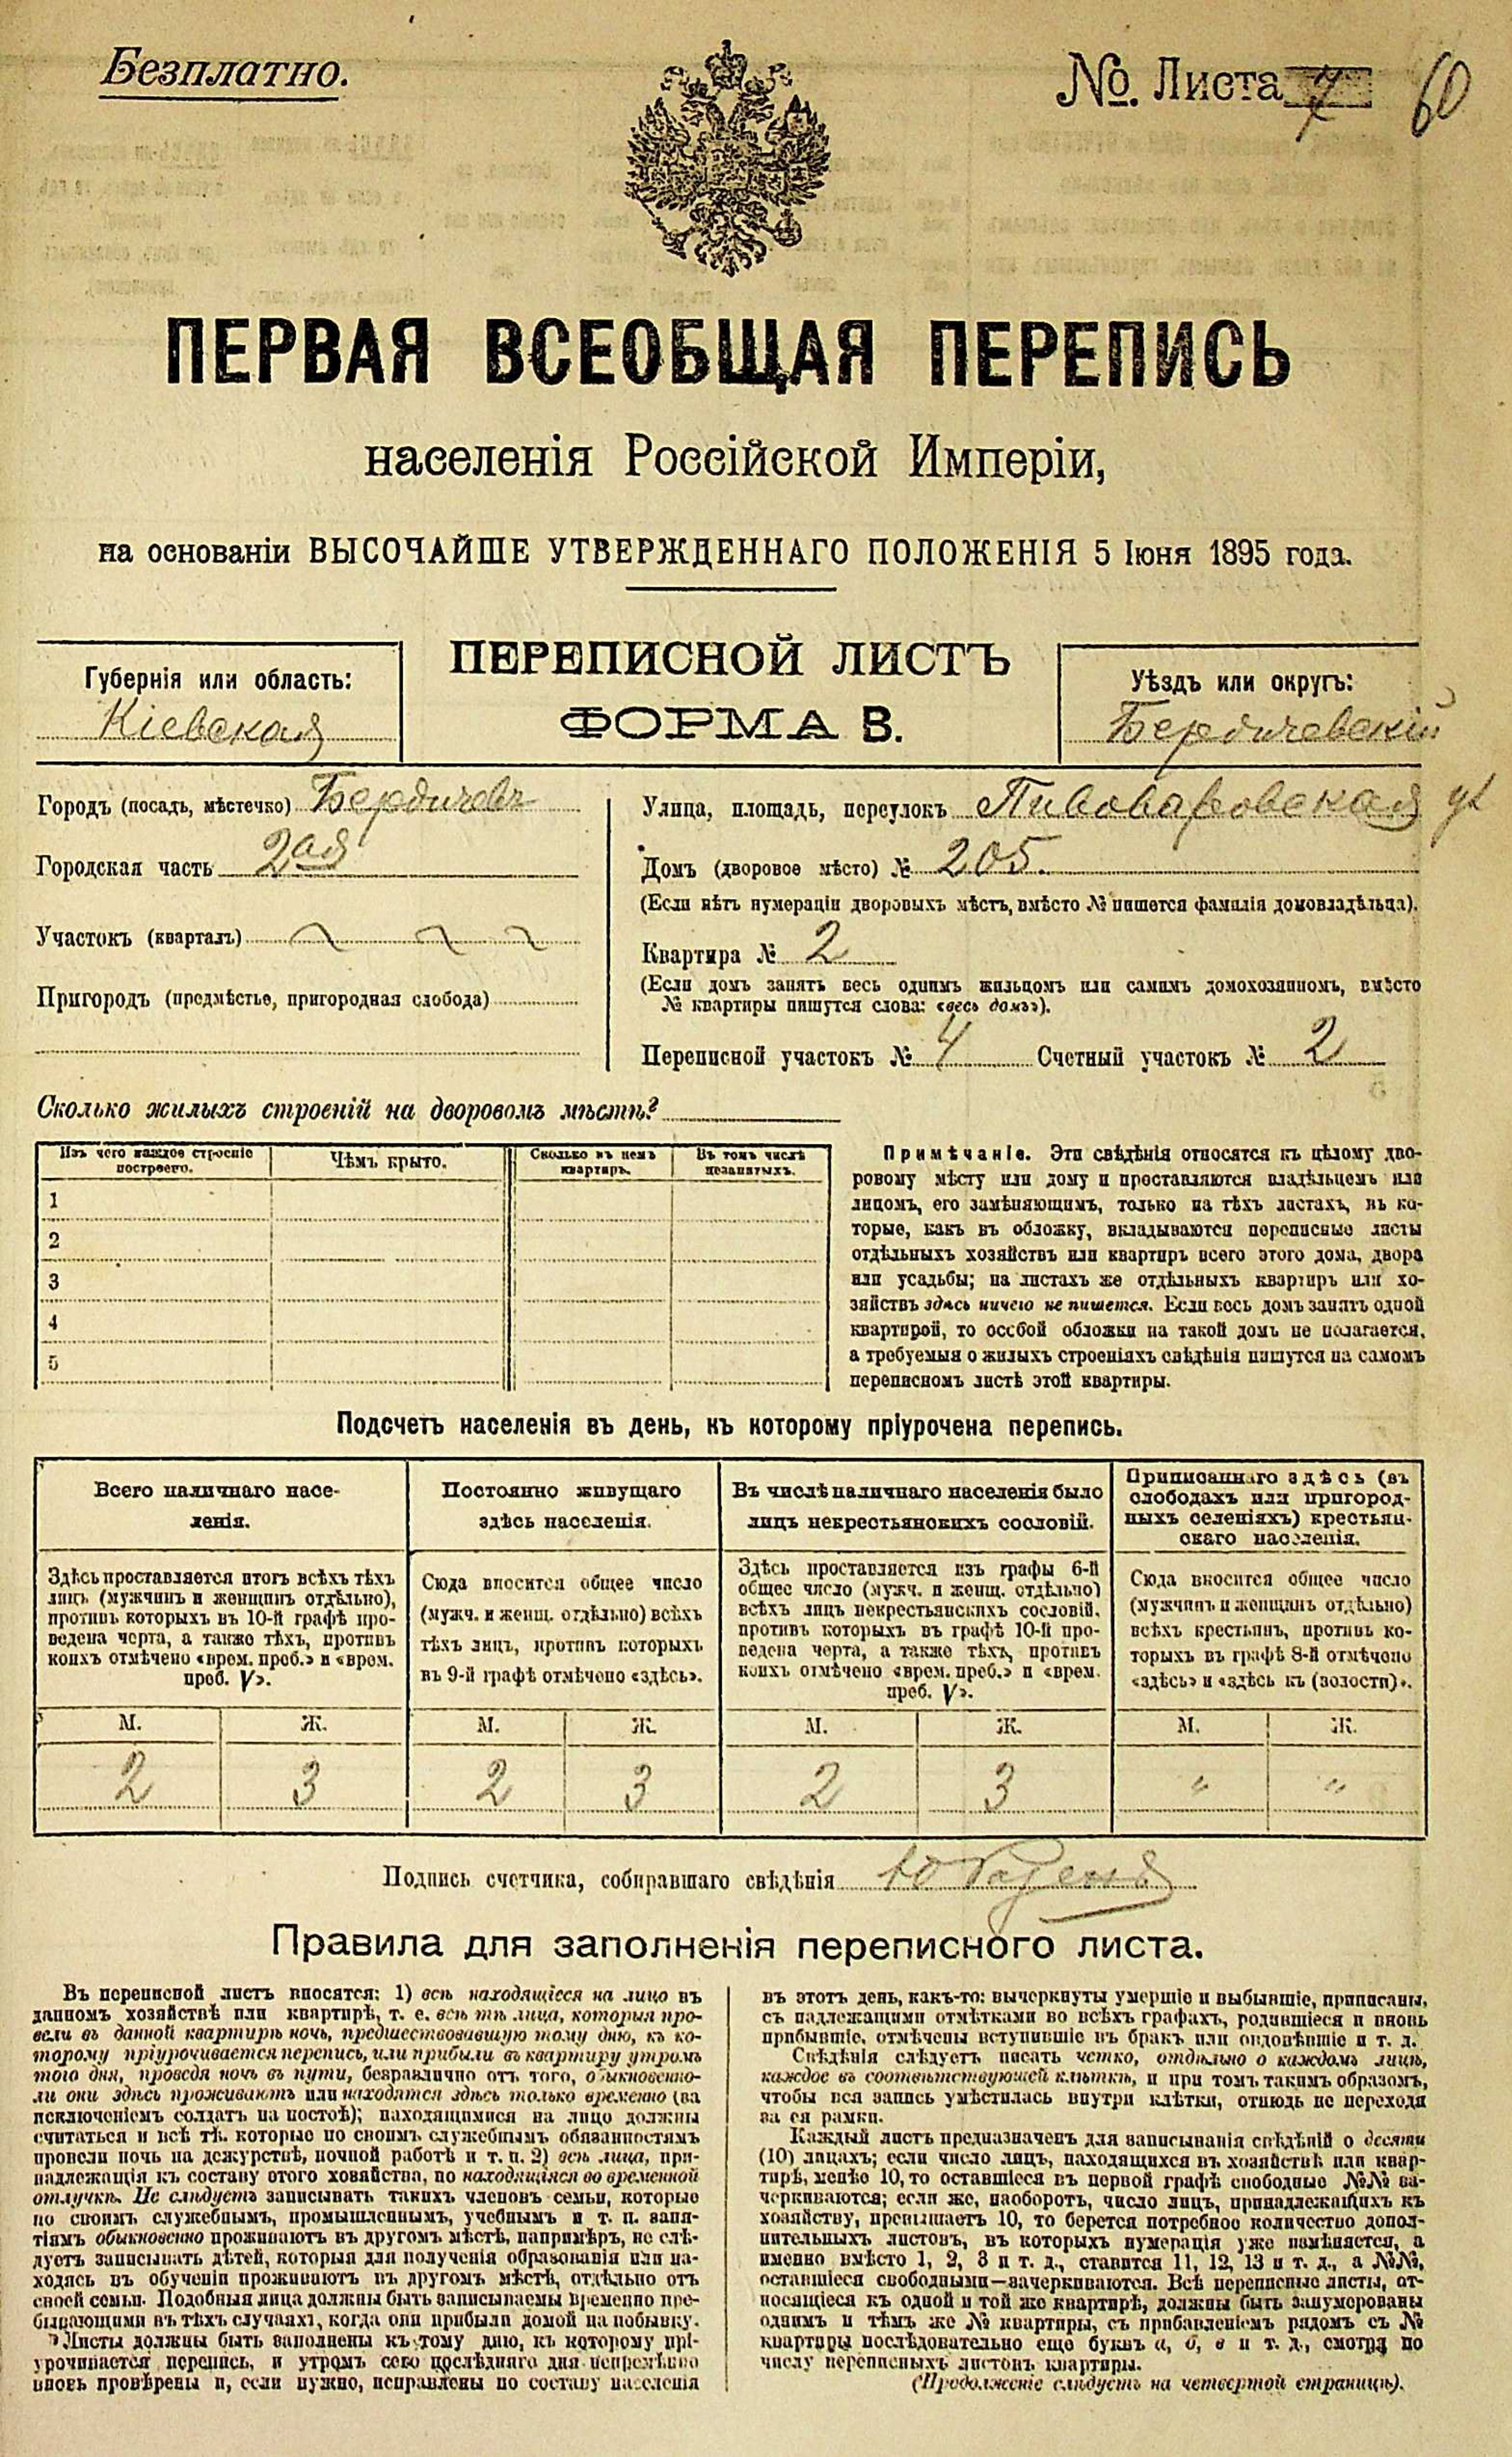 Безплатно.
№. Листа 7 60
ПЕРВАЯ ВСЕОБЩАЯ ПЕРЕПИСЬ
населенія Россійской Имперіи,
на основаніи ВЫСОЧАЙШЕ УТВЕРЖДЕННАГО ПОЛОЖЕНІЯ 5 Іюня 1895 года.
ПЕРЕПИСНОЙ ЛИСТЪ
ФОРМА В.
Губернія или область:
Кіевская
Уѣздъ или округъ:
Бердичевскій
Городъ (посадъ, мѣстечко) Бердичевъ
Городская часть 2ая
Участокъ (кварталъ)
Пригородъ (предмѣстье, пригородная слобода)
Улица, площадь, переулокъ Пивоваровская ул
Домъ (дворовое мѣсто) № 205.
(Если нѣтъ нумераціи дворовыхъ мѣстъ, вмѣсто № пишется фамилія домовладѣльца).
Квартира № 2
(Если домъ занятъ весь однимъ жильцомъ или самимъ домохозяиномъ, вмѣсто
№ квартиры пишутся слова: «весь домъ»).
Переписной участокъ № 4 Счетный участокъ № 2
Сколько жилыхъ строеній на дворовомъ мѣстѣ?
Изъ чего каждое строеніе
построено.
Чѣмъ крыто.
Сколько въ немъ
квартиръ.
Въ томъ числѣ
незанятыхъ.
1
2
3
4
5
Примѣчаніе. Эти свѣдѣнія относятся къ цѣлому дво-
ровому мѣсту или дому и проставляются владѣльцемъ или
лицомъ, его замѣняющимъ, только на тѣхъ листахъ, въ ко-
торые, какъ въ обложку, вкладываются переписные листы
отдѣльныхъ хозяйствъ или квартиръ всего этого дома, двора
или усадьбы; на листахъ же отдѣльныхъ квартиръ или хо-
зяйствъ здѣсь ничего не пишется. Если весь домъ занятъ одной
квартирой, то особой обложки на такой домъ не полагается,
а требуемыя о жилыхъ строеніяхъ свѣдѣнія пишутся на самомъ
переписномъ листѣ этой квартиры.
Подсчетъ населенія въ день, къ которому пріурочена перепись.
Всего наличнаго насе-
ленія.
Здѣсь проставляется итогъ всѣхъ тѣхъ
лицъ (мужчинъ и женщинъ отдѣльно),
противъ которыхъ въ 10-й графѣ про-
ведена черта, а также тѣхъ, противъ
коихъ отмѣчено «врем. преб.» и «врем.
преб. V».
М. Ж.
2 3
Постоянно живущаго
здѣсь населенія.
Сюда вносится общее число
(мужч. и женщ. отдѣльно) всѣхъ
тѣхъ лицъ, противъ которыхъ
въ 9-й графѣ отмѣчено «здѣсь».
М. Ж.
2 3
Въ числѣ наличнаго населенія было
лицъ некрестьянскихъ сословій.
Здѣсь проставляется изъ графы 6-й
общее число (мужч. и женщ. отдѣльно)
всѣхъ лицъ некрестьянскихъ сословій,
противъ которыхъ въ графѣ 10-й про-
ведена черта, а также тѣхъ, противъ
коихъ отмѣчено «врем. преб.» и «врем.
преб. V».
М. Ж.
2 3
Приписаннаго здѣсь (въ
слободахъ или пригород-
ныхъ селеніяхъ) крестьян-
скаго населенія.
Сюда вносится общее число
(мужчинъ и женщинъ отдѣльно)
всѣхъ крестьянъ, противъ ко-
торыхъ въ графѣ 8-й отмѣчено
«здѣсь» и «здѣсь къ (волости)».
М. Ж.
" "
Подпись счетчика, собиравшаго свѣдѣнія
Правила для заполненія переписного листа.
Въ переписной листъ вносятся: 1) всѣ находящіеся на лицо въ
данномъ хозяйствѣ или квартирѣ, т. е. всѣ тѣ лица, которыя про-
вели въ данной квартирѣ ночь, предшествовавшую тому дню, къ ко-
торому пріурочивается перепись, или прибыли въ квартиру утромъ
того дня, проведя ночь въ пути, безразлично отъ того, обыкновенно-
ли они здѣсь проживаютъ или находятся здѣсь только временно (за
исключеніемъ солдатъ на постоѣ); находящимися на лицо должны
считаться и всѣ тѣ, которые по своимъ служебнымъ обязанностямъ
провели ночь на дежурствѣ, ночной работѣ и т. п. 2) всѣ лица, при-
надлежащія къ составу этого хозяйства, но находящіяся во временной
отлучкѣ. Не слѣдуетъ записывать такихъ членовъ семьи, которые
по своимъ служебнымъ, промышленнымъ, учебнымъ и т. п. заня-
тіямъ обыкновенно проживаютъ въ другомъ мѣстѣ, напримѣръ, не слѣ-
дуетъ записывать дѣтей, которыя для полученія образованія или на-
ходясь въ обученіи проживаютъ въ другомъ мѣстѣ, отдѣльно отъ
своей семьи. Подобныя лица должны быть записываемы временно пре-
бывающими въ тѣхъ случаяхъ, когда они прибыли домой на побывку.
Листы должны быть заполнены къ тому дню, къ которому прі-
урочивается перепись, и утромъ сего послѣдняго дня непремѣнно
вновь провѣрены и, если нужно, исправлены по составу населенія
въ этотъ день, какъ-то: вычеркнуты умершіе и выбывшіе, приписаны,
съ надлежащими отмѣтками во всѣхъ графахъ, родившіеся и вновь
прибывшіе, отмѣчены вступившіе въ бракъ или овдовѣвшіе и т. д.
Свѣдѣнія слѣдуетъ писать четко, отдѣльно о каждомъ лицѣ,
каждое въ соотвѣтствующей клѣткѣ, и при томъ такимъ образомъ,
чтобы вся запись умѣстилась внутри клѣтки, отнюдь не переходя
за ея рамки.
Каждый листъ предназначенъ для записыванія свѣдѣній о десяти
(10) лицахъ; если число лицъ, находящихся въ хозяйствѣ или квар-
тирѣ, менѣе 10, то оставшіеся въ первой графѣ свободные №№ за-
черкиваются; если же, наоборотъ, число лицъ, принадлежащихъ къ
хозяйству, превышаетъ 10, то берется потребное количество допол-
нительныхъ листовъ, въ которыхъ нумерація уже измѣняется, а
именно вмѣсто 1, 2, 3 и т. д., ставится 11, 12, 13 и т. д., а №№,
оставшіеся свободными—зачеркиваются. Всѣ переписные листы, от-
носящіеся къ одной и той же квартирѣ, должны быть занумерованы
однимъ и тѣмъ же № квартиры, съ прибавленіемъ рядомъ съ №
квартиры послѣдовательно еще буквъ а, б, в и т. д., смотря по
числу переписныхъ листовъ квартиры.
(Продолженіе слѣдуетъ на четвертой страницѣ).